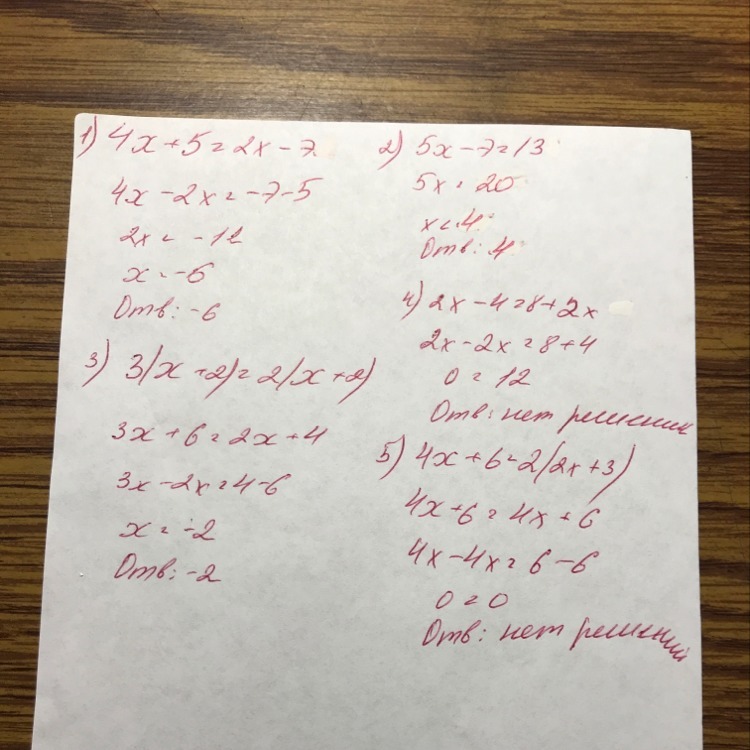 1) 4x+5=2x-7
4x-2x=-7-5
2x=-12
x=-6
Отв: -6
2) 5x-7=13
5x=20
x=4
Отв: 4
3) 3(x+2)=2(x+2)
3x+6=2x+4
3x-2x=4-6
x=-2
Отв: -2
4) 2x-4=8+2x
2x-2x=8+4
0=12
Отв: нет решений
5) 4x+6=2(2x+3)
4x+6=4x+6
4x-4x=6-6
0=0
Отв: нет решений